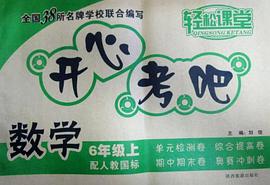 全国38所名牌学校联合编写
轻松课堂
QINGSONG KETANG
开心考吧
数学
6年级上
配人教国标
主编 刘俊
单元检测卷 综合提高卷
期中期末卷 奥赛冲刺卷
陕西旅游出版社